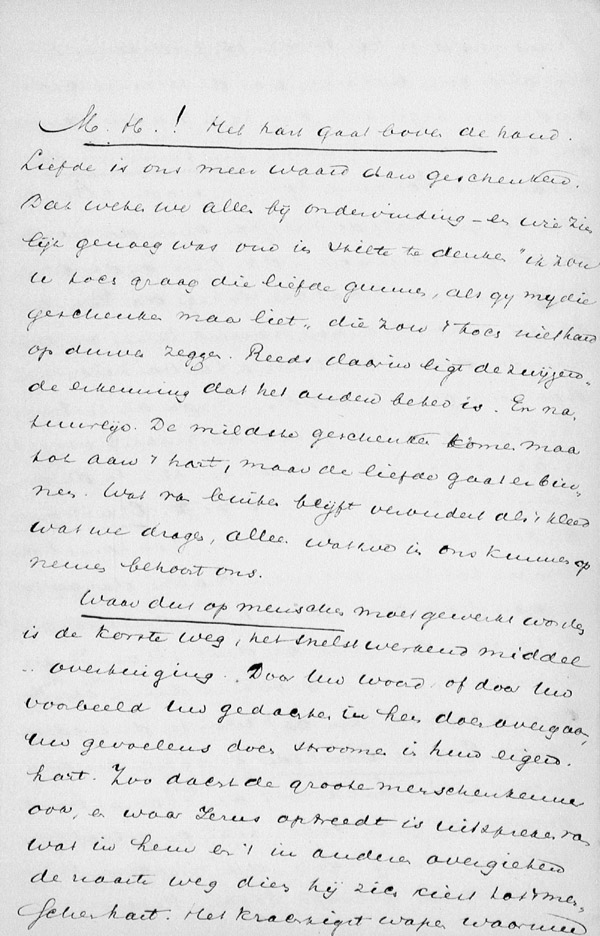 M. H.! Het hart gaat boven de hand.
Liefde is ons meer waard dan geschenken.
Dat weten we allen bij ondervinding – en wie zie
lijk genoeg was ons in stilte te denken "ik zou
u toch graag die liefde gunnen, als gy my die
geschenken maar liet" die zou 't toch niet hard
op durven zeggen. Reeds daarin ligt de zwijgen-
de erkenning dat het andere beter is. En na
tuurlijk. De mildste geschenken komen maar
tot aan 't hart, maar de liefde gaat er bin-
nen. Wat van buiten blyft verandert als 't kleed
wat we dragen, alleen wat we in ons kunnen op
nemen behoort ons.
Waar dus op menschen moet gewerkt worden
is de kortste weg, het snelst werkend middel
.. overbrenging. Door Uw woord, of door Uw
voorbeeld Uw gedachten in hen doen overgaan,
Uw gevoelens doen stroomen in hun eigen
hart. Zoo dacht de groote menschenkenner
ook, en waar Jezus optreedt is uitspreken van
wat in hem en 't in anderen overgieten
de naaste weg dien hij zich kiest tot 't men-
schenhart. Het krachtigst wapen waarmee